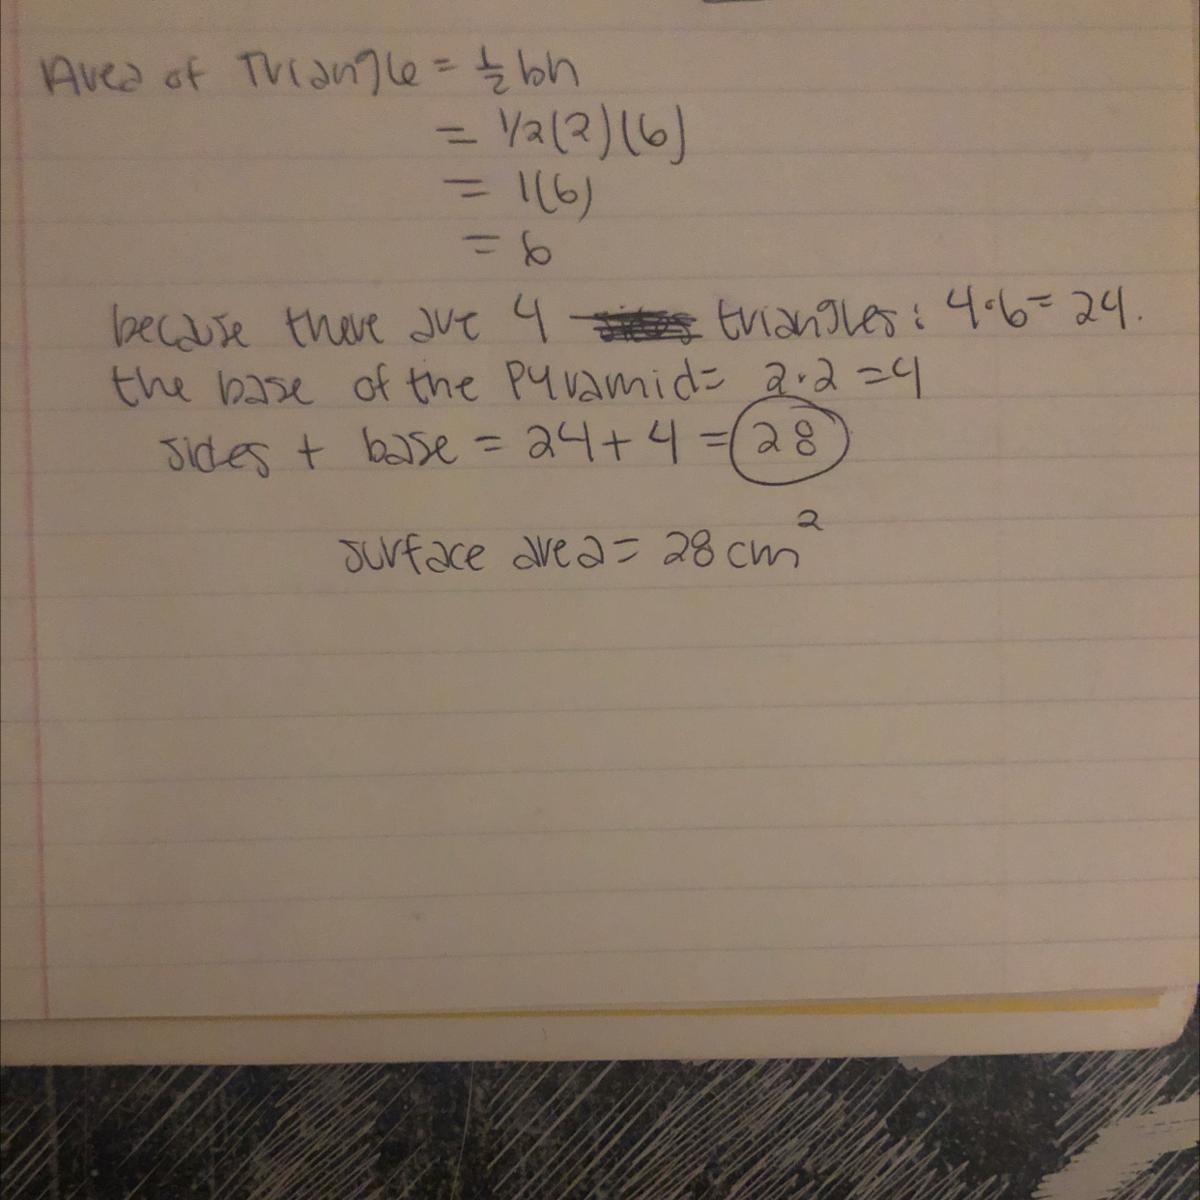 Area of Triangle = ½ bh
= 1/2(2)(6)
= 1(6)
= 6
because there are 4 triangles: 4·6= 24.
the base of the Pyramid= 2·2=4
sides + base = 24+4=28
surface area= 28cm²